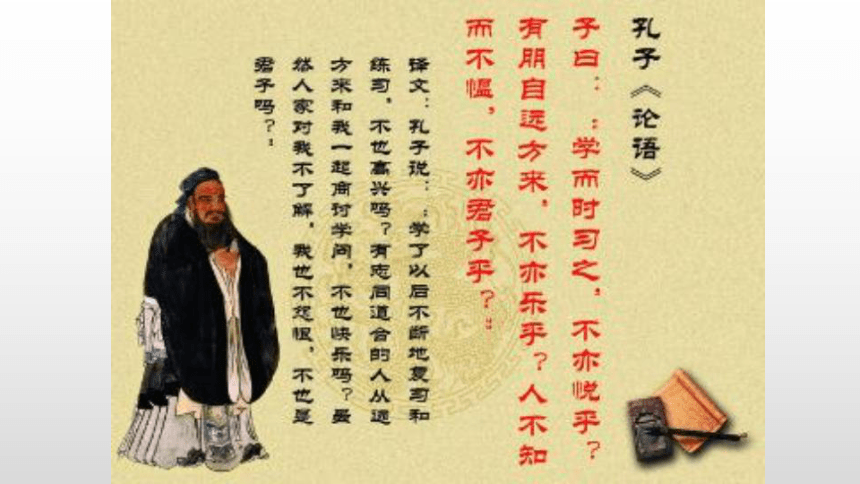 孔子《论语》
子曰：“学而时习之，不亦悦乎？
有朋自远方来，不亦乐乎？人不知
而不愠，不亦君子乎？”
译文：孔子说：“学了以后不断地复习和
练习，不也高兴吗？有志同道合的人从远
方来和我一起商讨学问，不也快乐吗？虽
然人家对我不了解，我也不怨恨，不也是
君子吗？”